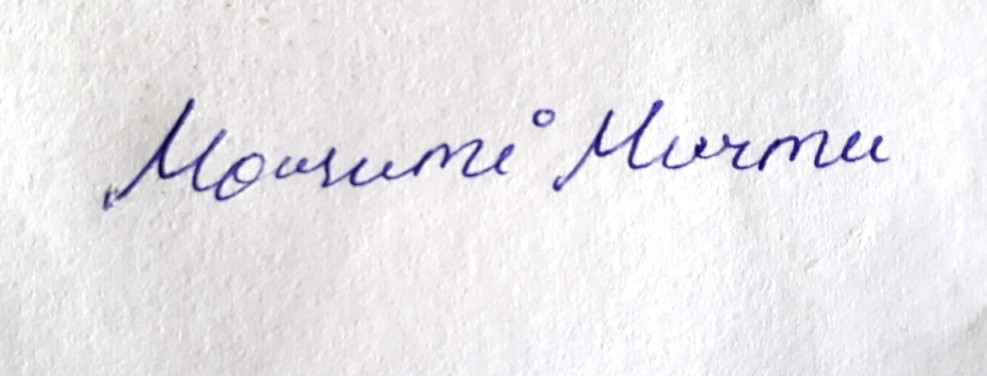 Mousumi Murmu